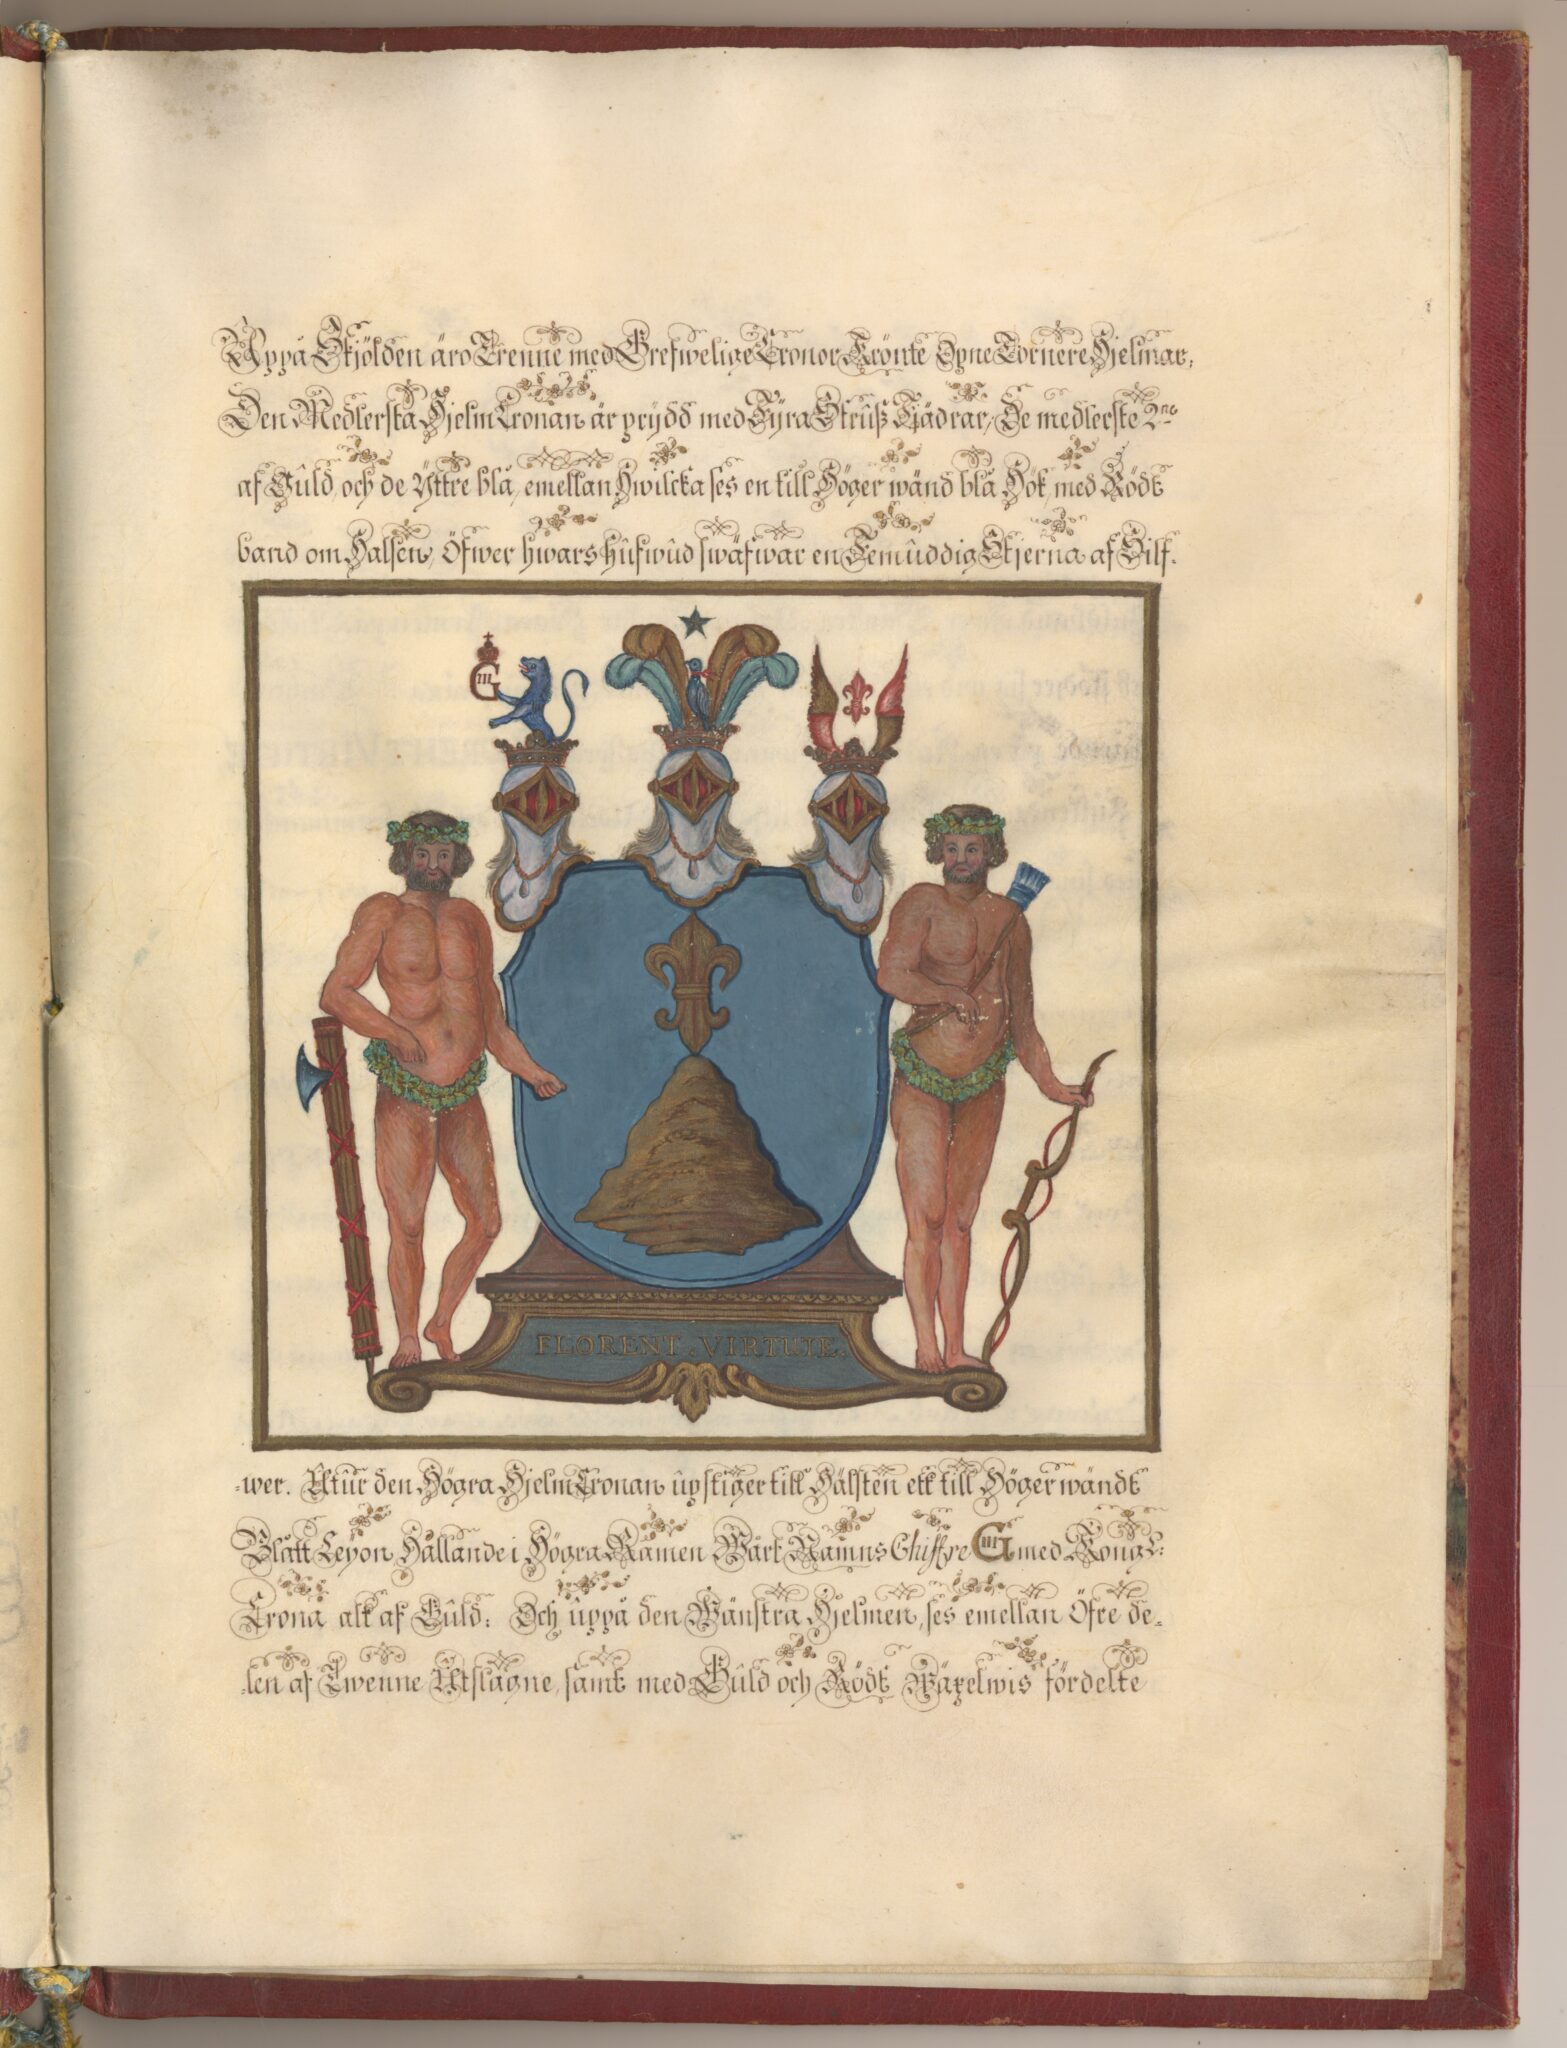 Uppå Skjölden äro Trenne med Grefwelige Cronor Krönte Öpne Tornere Hjelmar,
Den Medlersta Hjelm Cronan är prydd med Fyra Strûß Fjädrar, De medlerste 2ne
af Gûld, och de Yttre blå, emellan Hwilcka ses en till Höger wänd blå Hök, med Rödt
band om Halsen, öfwer hwars hûfwûd swäfwar en Femûddig Stjerna af Silf-
G III
FLORENT . VIRTUTE.
-wer. Utûr den Högra Hjelm Cronan ûpstiger till Hälften ett till Höger wändt
Blått Leyon, Hållande i Högra Ramen Wårt Namns Chiffre G III med Kongl:
Crona alt af Gûld: Och ûppå den Wänstra Hjelmen, ses emellan öfre de-
-len af Twenne Utslagne, samt med Gûld och Rödt Wäxelwis fördelte